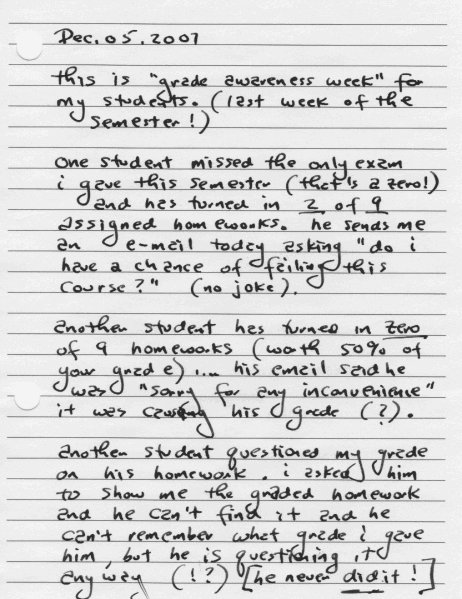 Dec. 05. 2007
this is "grade awareness week" for
my students. (last week of the
semester!)
one student missed the only exam
i gave this semester (that's a zero!)
and has turned in 2 of 9
assigned homeworks. he sends me
an e-mail today asking "do i
have a chance of failing this
course?" (no joke).
another student has turned in zero
of 9 homeworks (worth 50% of
your grade).... his email said he
was "sorry for any inconvenience"
it was causing his grade (?).
another student questioned my grade
on his homework. i asked him
to show me the graded homework
and he can't find it and he
can't remember what grade i gave
him, but he is questioning it
any way (!?) [he never did it!]